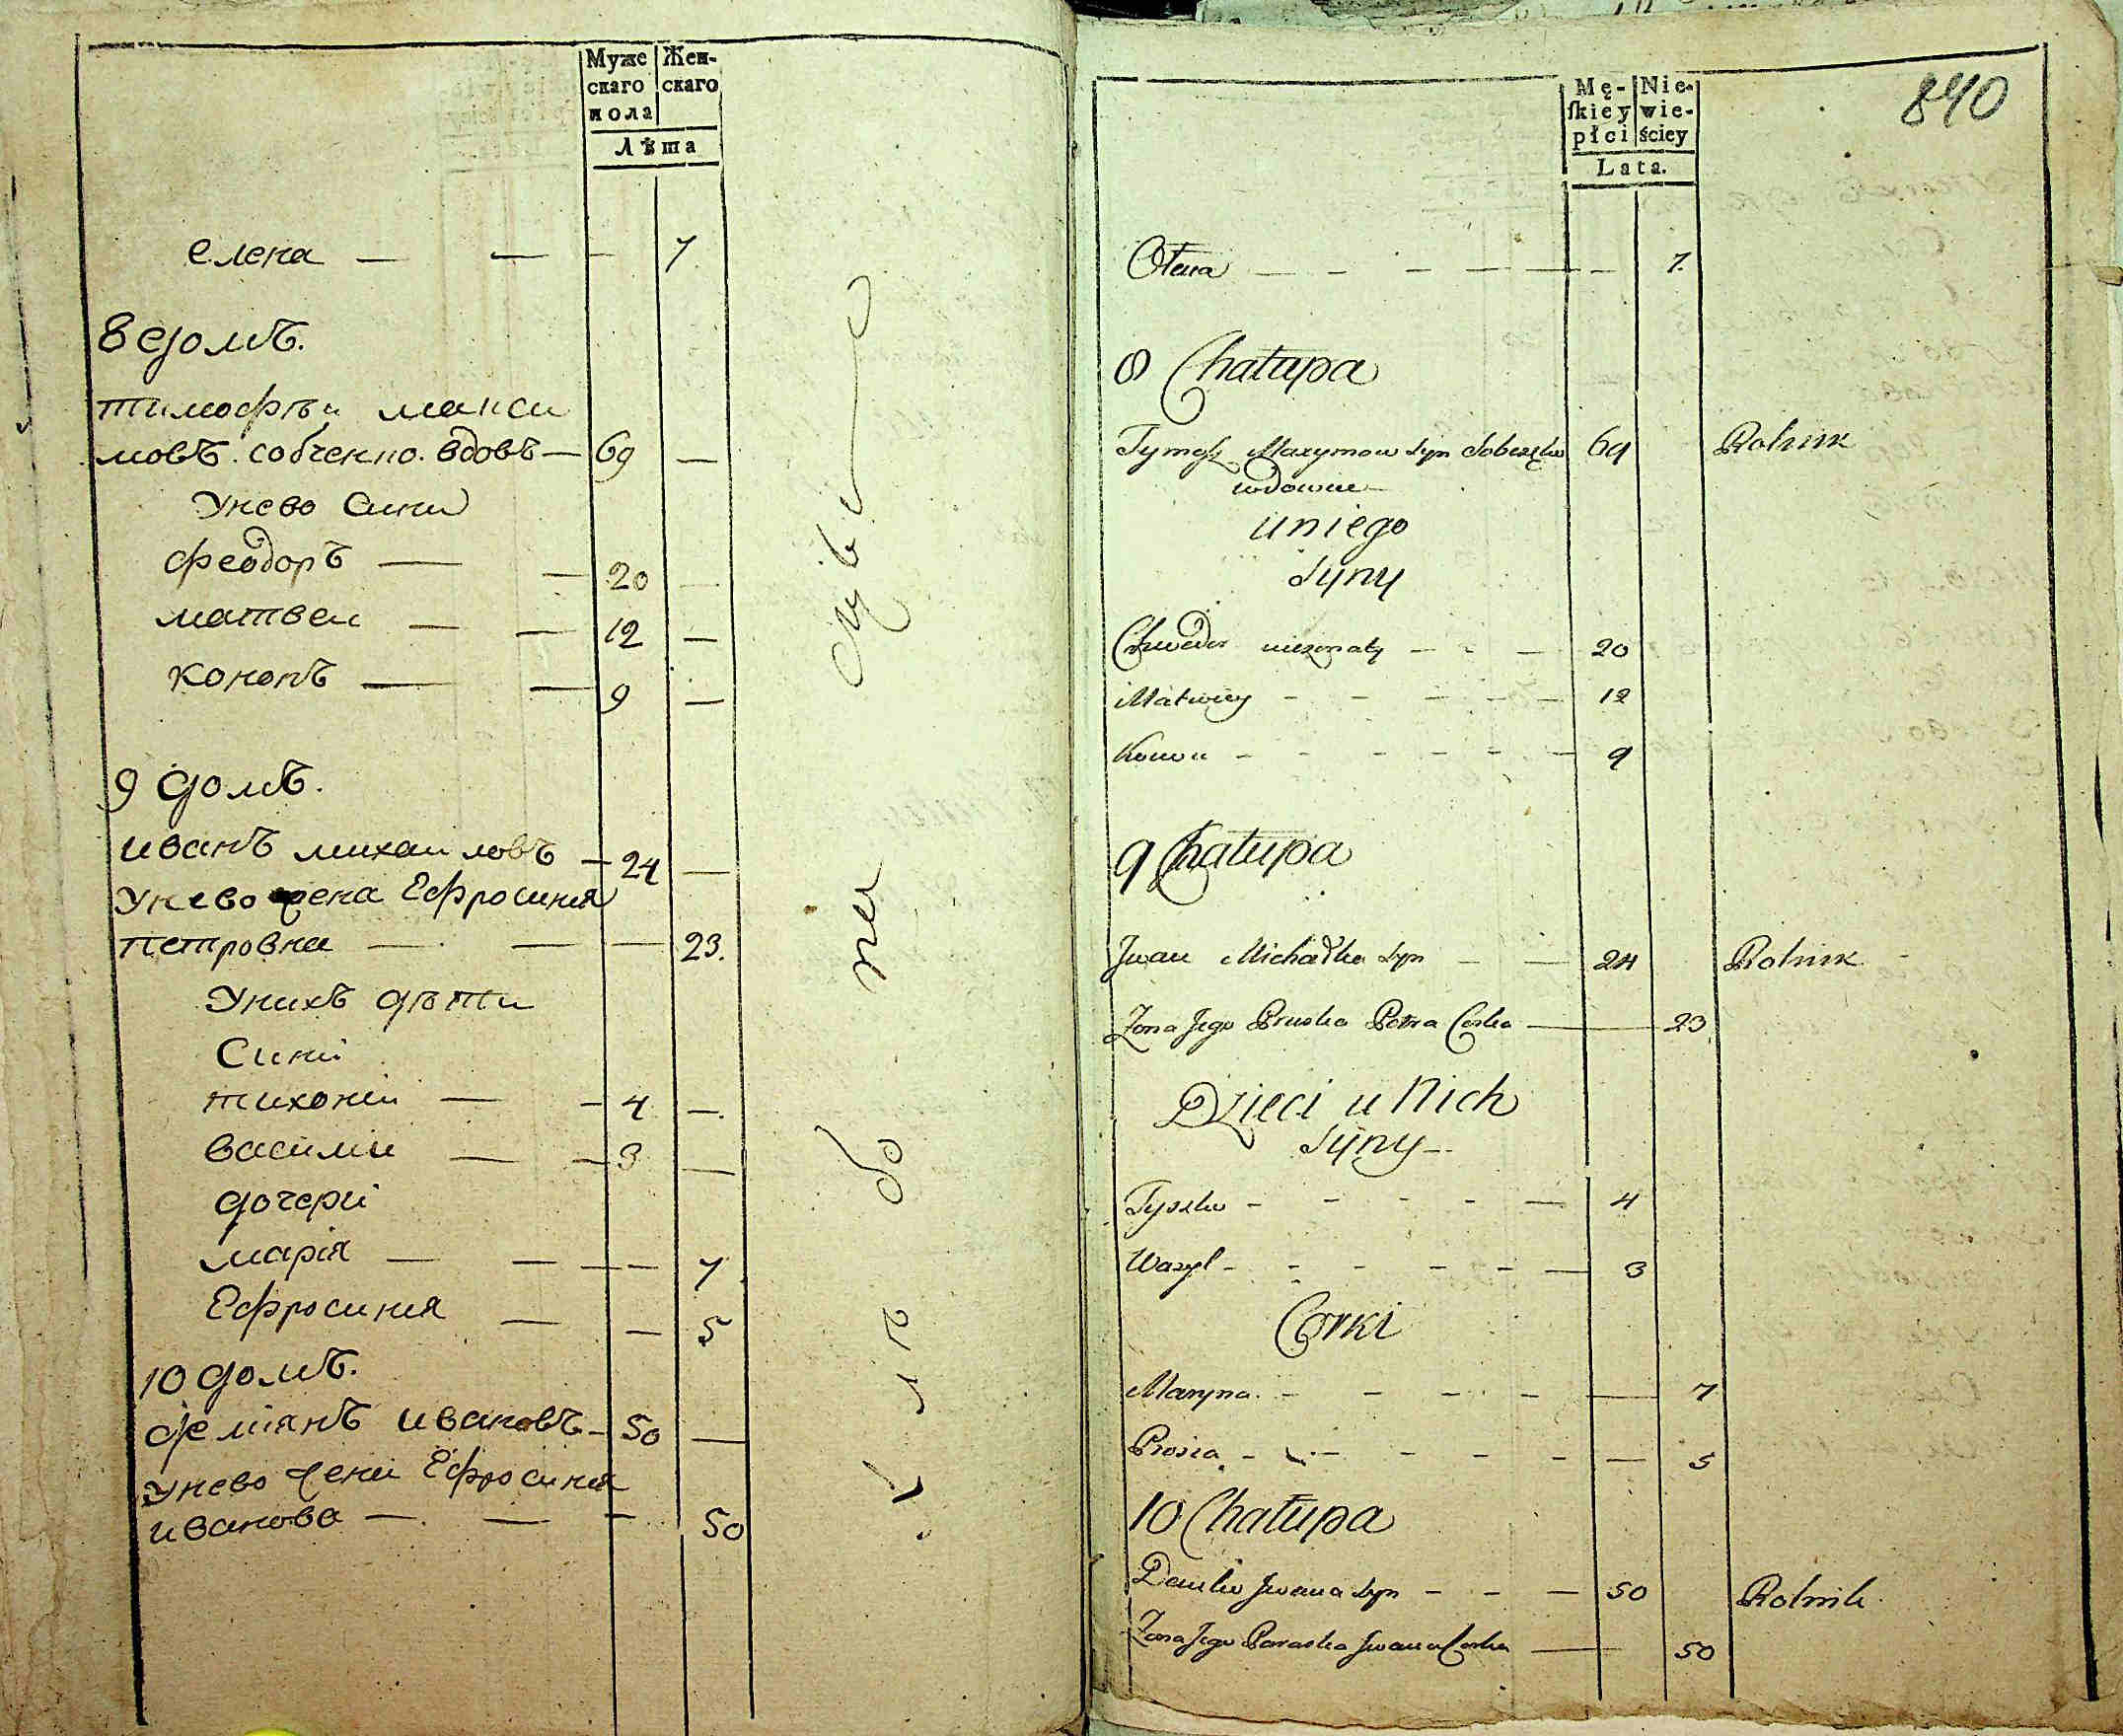 Муже
скаго
пола
Жен-
скаго
Лѣта
елена — — — 7
8 домъ.
тимофѣи макси
мовъ собченко вдовъ — 69 —
Унево сини
феодоръ — — 20 —
матвеи — — 12 —
кононъ — — 9 —
9 домъ.
иванъ михаиловъ — 24 —
Унево жена Ефросиния
петровна — — — 23.
Унихъ дѣти
Сини
тихоніи — — 4 —.
василии — — 3 —
дочери
марія — — — — 7
Ефросиния — — 5
10 домъ.
демиянъ ивановъ — 50 —
унево жени Ефросиния
иванова — — — 50
Mę-
skiey
płci
Nie-
wie-
ściey
Lata.
840
Ołena — — — — — — 7.
8 Chałupa
Tymosz Maxymow syn Sobczęko 69 Rolnik
wdowiec
u niego
Syny
Chwedor nieżonaty — — — 20
Matwiey — — — — — 12
Konon — — — — — — 9
9 Chałupa
Jwan Michałka syn — — 24 Rolnik
Żona Jego Pruska Petra Corka — 23
Dzieci u Nich
Syny —
Tyszko — — — — — 4
Wasyl — — — — — — 3
Corki
Maryna. — — — — — 7
Prosia — — — — — — 5
10 Chałupa
Demko Jwana syn — — — 50 Rolnik
Żona Jego Paraska Jwana Corka — 50